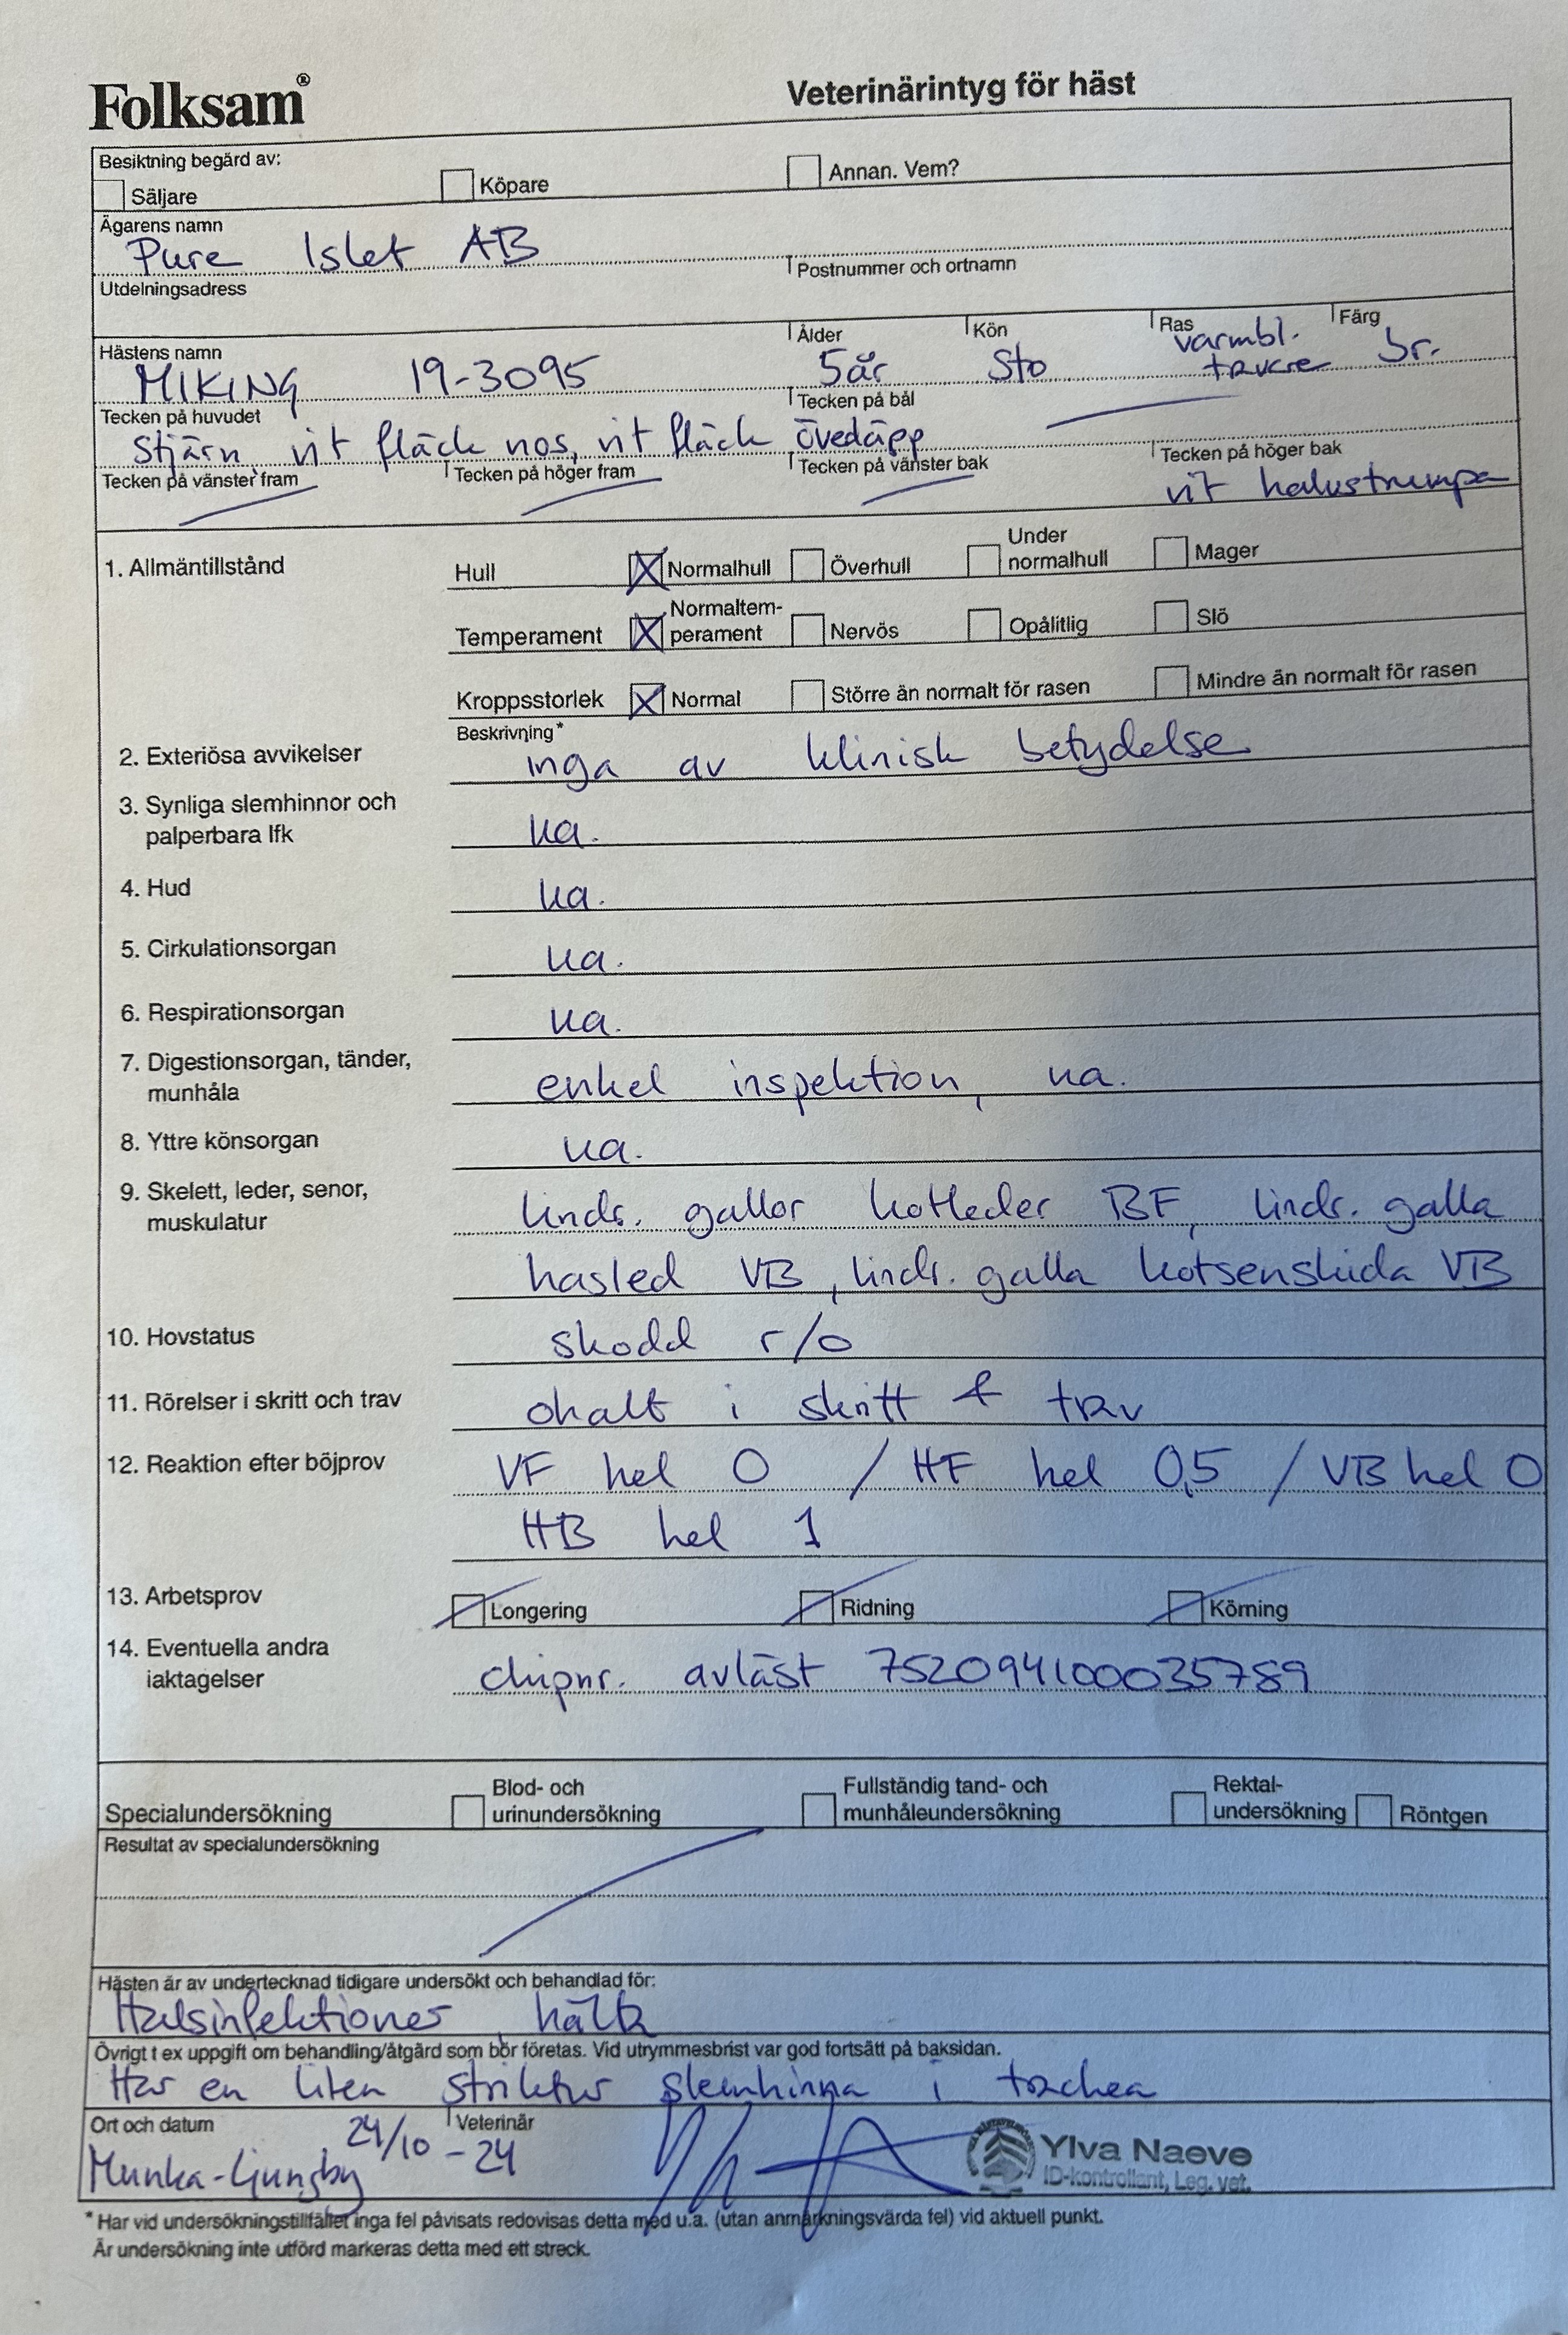 Folksam®
Veterinärintyg för häst
Besiktning begärd av:
Säljare Köpare Annan. Vem?
Ägarens namn
Pure Islet AB
Utdelningsadress Postnummer och ortnamn
Hästens namn Ålder Kön Ras Färg
MIKING 19-3095 5år Sto varmbl. travare br.
Tecken på huvudet Tecken på bål
Stjärn, vit fläck nos, vit fläck överläpp
Tecken på vänster fram Tecken på höger fram Tecken på vänster bak Tecken på höger bak
vit halvstrumpa
1. Allmäntillstånd Hull Normalhull Överhull Under normalhull Mager
Temperament Normaltem-perament Nervös Opålitlig Slö
Kroppsstorlek Normal Större än normalt för rasen Mindre än normalt för rasen
Beskrivning*
2. Exteriösa avvikelser inga av klinisk betydelse
3. Synliga slemhinnor och
palperbara lfk ua.
4. Hud ua.
5. Cirkulationsorgan ua.
6. Respirationsorgan ua.
7. Digestionsorgan, tänder,
munhåla enkel inspektion, ua.
8. Yttre könsorgan ua.
9. Skelett, leder, senor,
muskulatur lindr. gallor kotleder BF, lindr. galla
hasled VB, lindr. galla kotsenskida VB
10. Hovstatus skodd r/o
11. Rörelser i skritt och trav ohalt i skritt & trav
12. Reaktion efter böjprov VF hel 0 / HF hel 0,5 / VB hel 0
HB hel 1
13. Arbetsprov Longering Ridning Körning
14. Eventuella andra
iaktagelser chipnr. avläst 752094100035789
Specialundersökning Blod- och urinundersökning Fullständig tand- och munhåleundersökning Rektal-undersökning Röntgen
Resultat av specialundersökning
Hästen är av undertecknad tidigare undersökt och behandlad för:
Halsinfektioner, hälta
Övrigt t ex uppgift om behandling/åtgärd som bör företas. Vid utrymmesbrist var god fortsätt på baksidan.
Har en liten striktur slemhinna i trachea
Ort och datum Veterinär
Munka-Ljungby 24/10 -24
Ylva Naeve
ID-kontrollant, Leg. vet.
* Har vid undersökningstillfället inga fel påvisats redovisas detta med u.a. (utan anmärkningsvärda fel) vid aktuell punkt.
Är undersökning inte utförd markeras detta med ett streck.